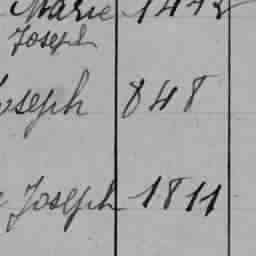 Marie 1442
Joseph
Joseph 848
Joseph 1811